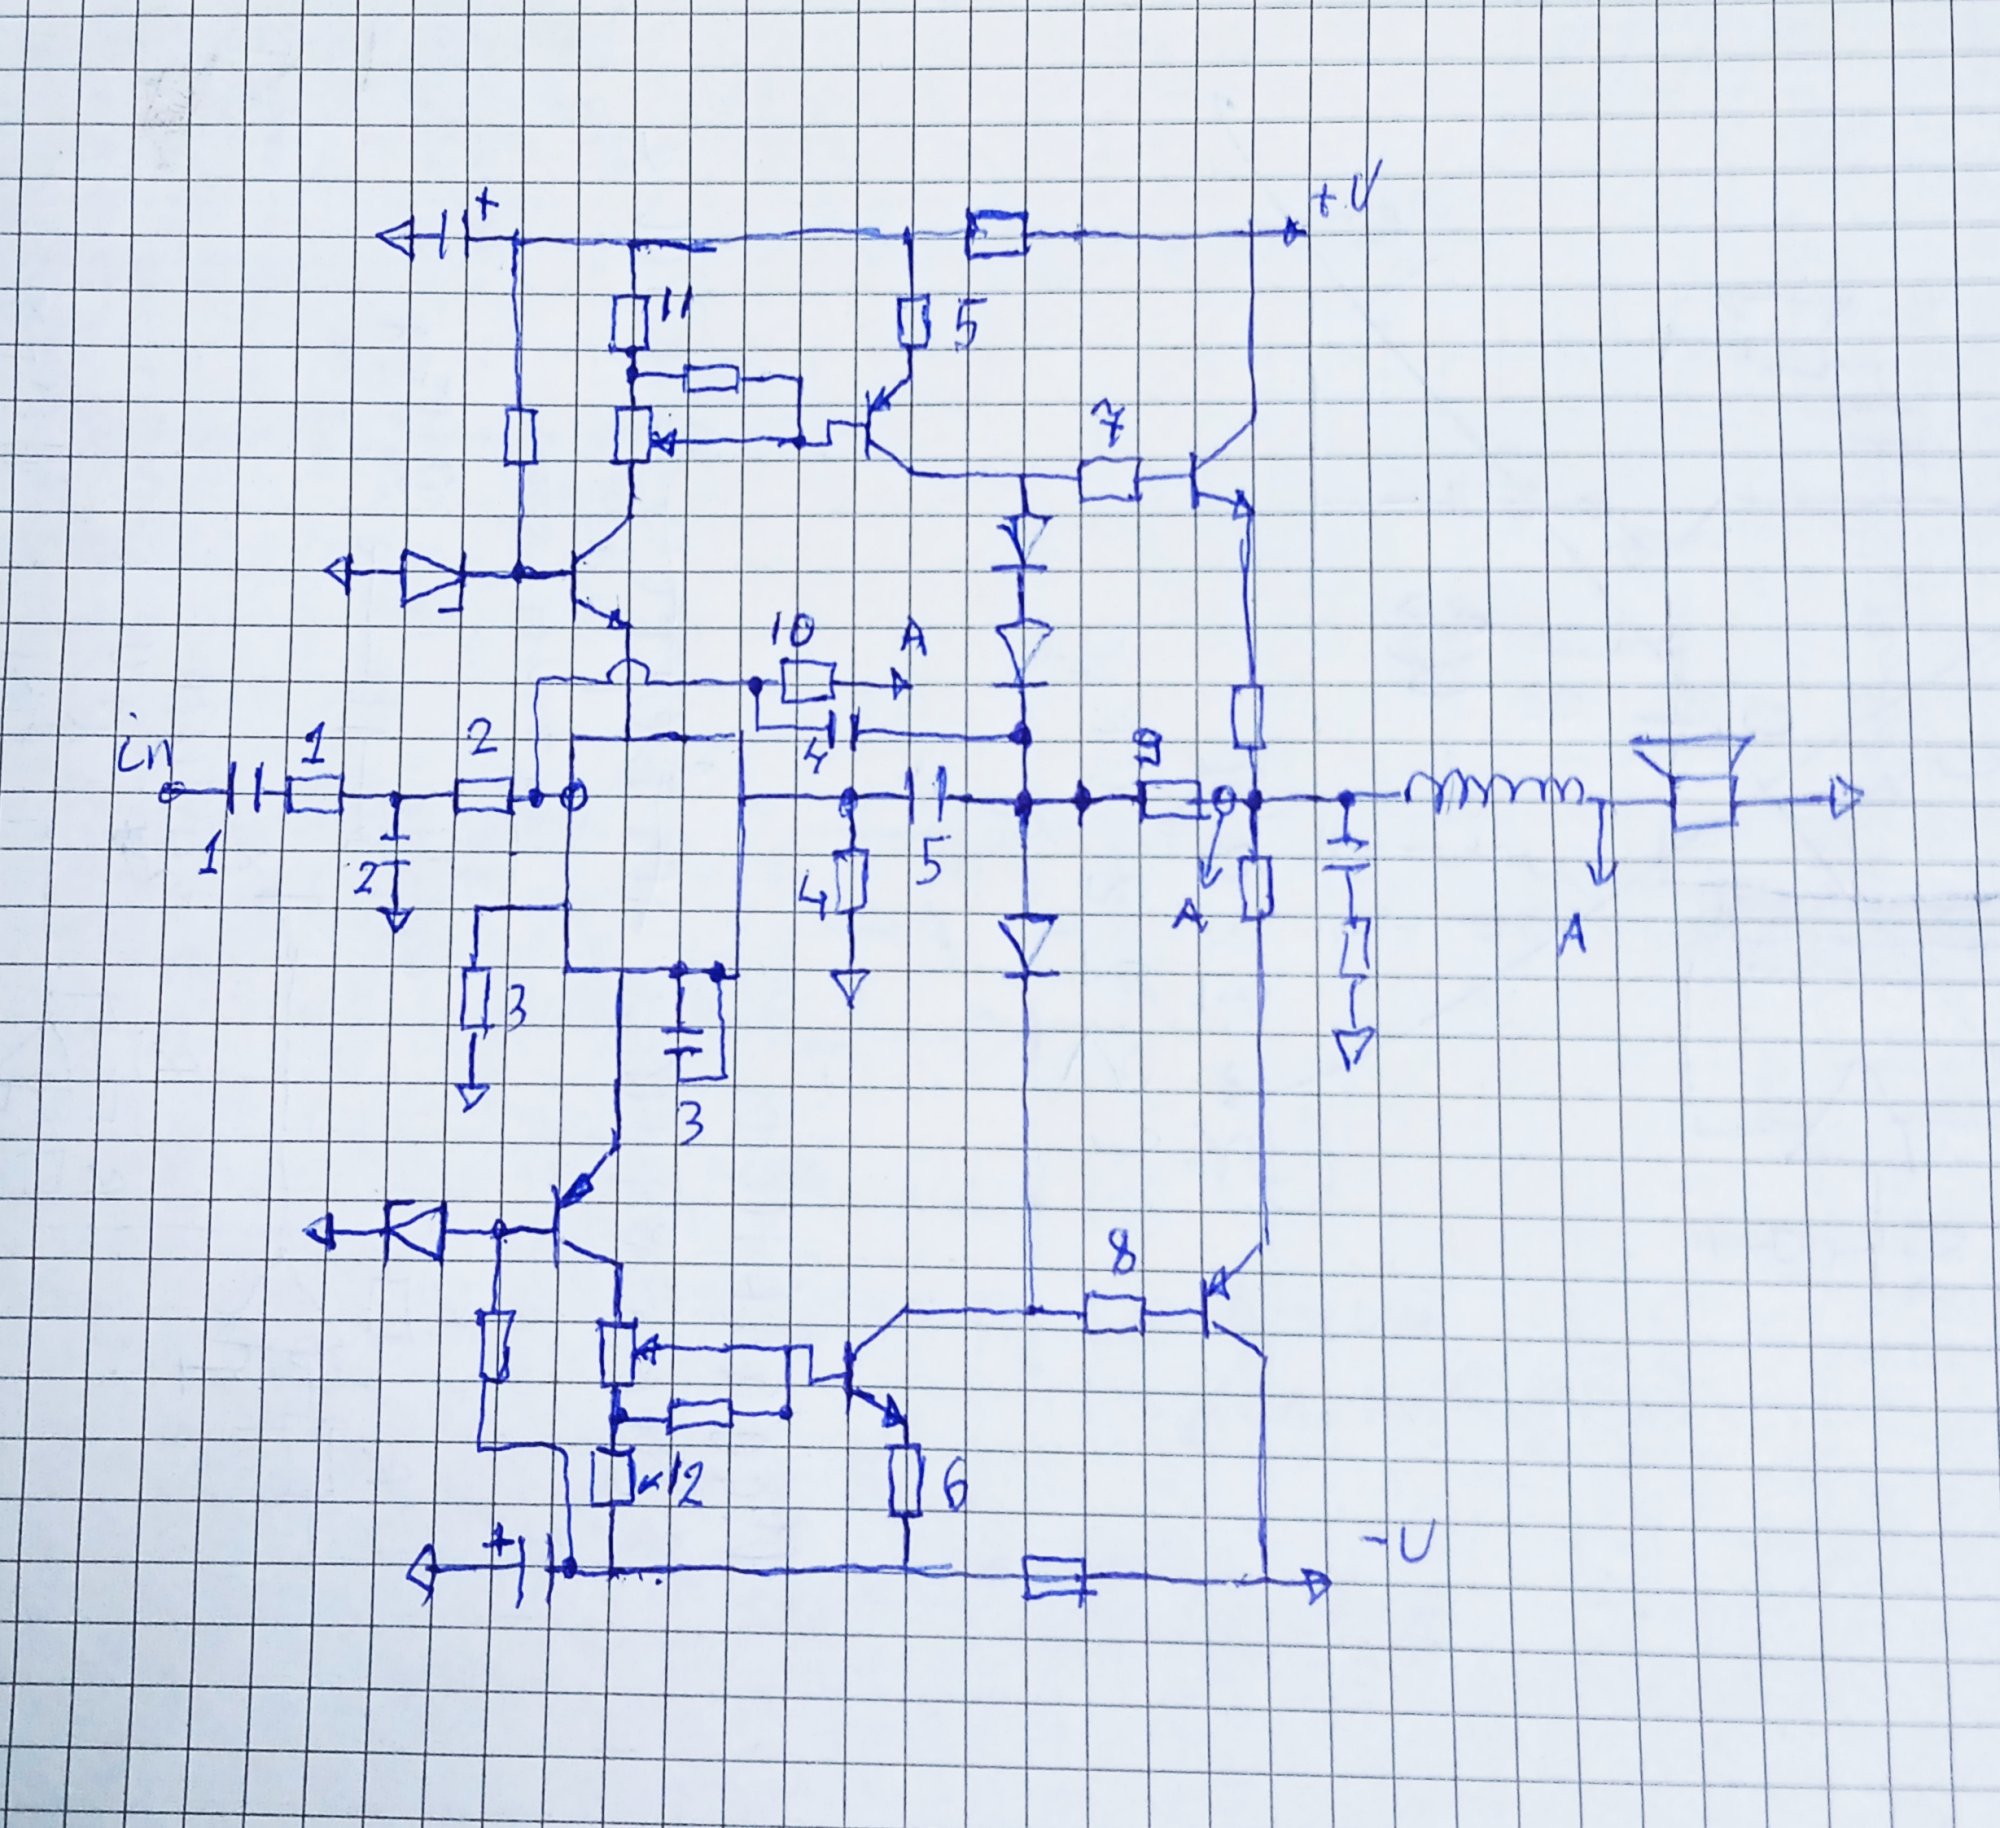 +
+U
11
5
7
10
A
in
1
2
9
4
1
2
4
5
A
A
3
3
8
12
6
+
-U